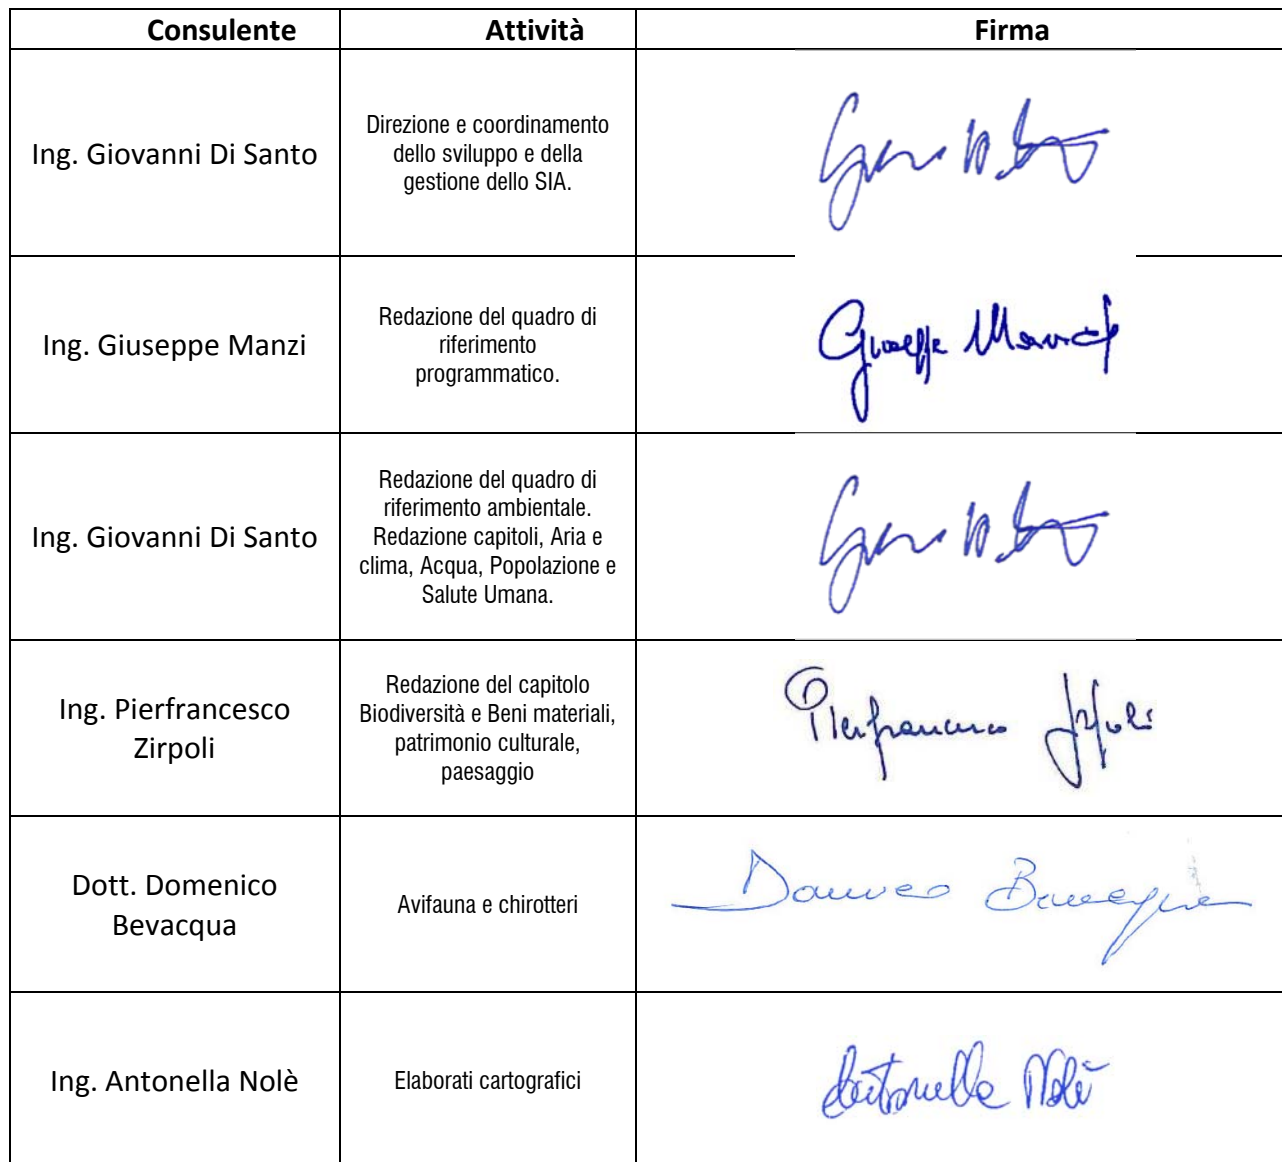 Consulente Attività Firma
Ing. Giovanni Di Santo
Direzione e coordinamento
dello sviluppo e della
gestione dello SIA.
Ing. Giuseppe Manzi
Redazione del quadro di
riferimento
programmatico.
Giuseppe Manzi
Ing. Giovanni Di Santo
Redazione del quadro di
riferimento ambientale.
Redazione capitoli, Aria e
clima, Acqua, Popolazione e
Salute Umana.
Ing. Pierfrancesco
Zirpoli
Redazione del capitolo
Biodiversità e Beni materiali,
patrimonio culturale,
paesaggio
Pierfrancesco Zirpoli
Dott. Domenico
Bevacqua
Avifauna e chirotteri
Domenico Bevacqua
Ing. Antonella Nolè
Elaborati cartografici
Antonella Nolè